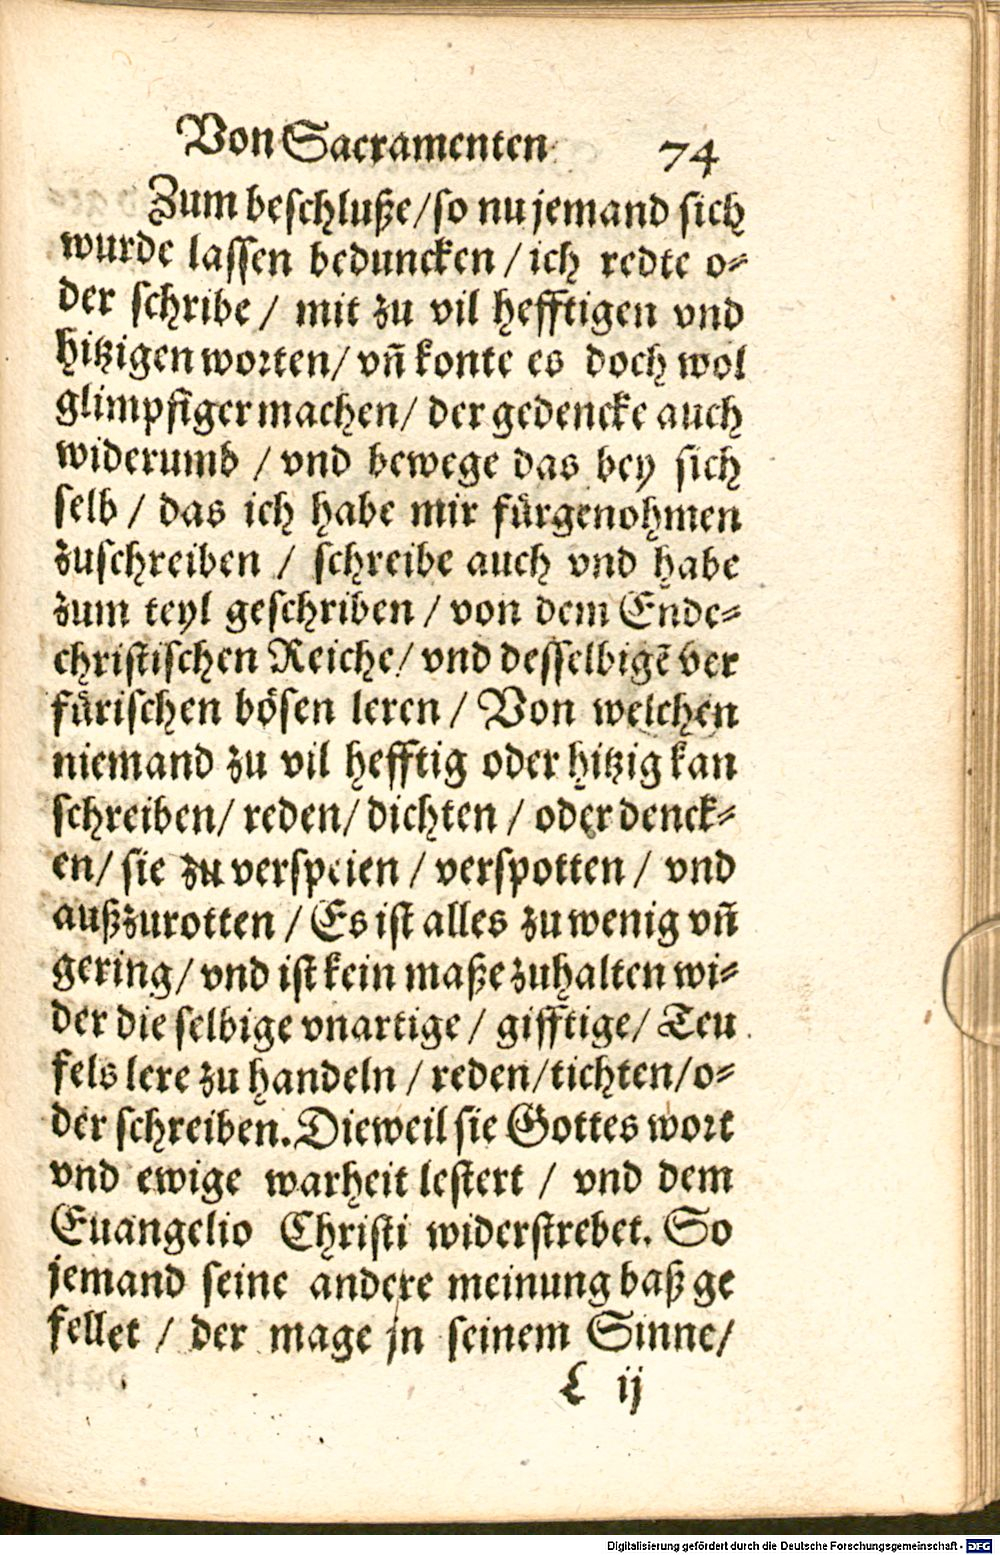 Von Sacramenten 74
Zum beschluße/so nu jemand sich
wurde lassen beduncken / ich redte o⸗
der schribe / mit zu vil hefftigen vnd
hitzigen worten/ vn̄ konte es doch wol
glimpfiger machen/ der gedencke auch
widerumb / vnd bewege das bey sich
selb / das ich habe mir fürgenohmen
zuschreiben / schreibe auch vnd habe
zum teyl geschriben / von dem Ende⸗
christischen Reiche/ vnd desselbigē ver
fürischen bösen leren / Von welchen
niemand zu vil hefftig oder hitzig kan
schreiben/ reden/ dichten / oder denck⸗
en/ sie zu verspeien / verspotten / vnd
außzurotten / Es ist alles zu wenig vn̄
gering/ vnd ist kein maße zuhalten wi⸗
der die selbige vnartige / gifftige/ Teu
fels lere zu handeln / reden/tichten/o⸗
der schreiben. Dieweil sie Gottes wort
vnd ewige warheit lestert / vnd dem
Euangelio Christi widerstrebet. So
jemand seine andere meinung baß ge
fellet / der mage jn seinem Sinne/
L ij
Digitalisierung gefördert durch die Deutsche Forschungsgemeinschaft - DFG